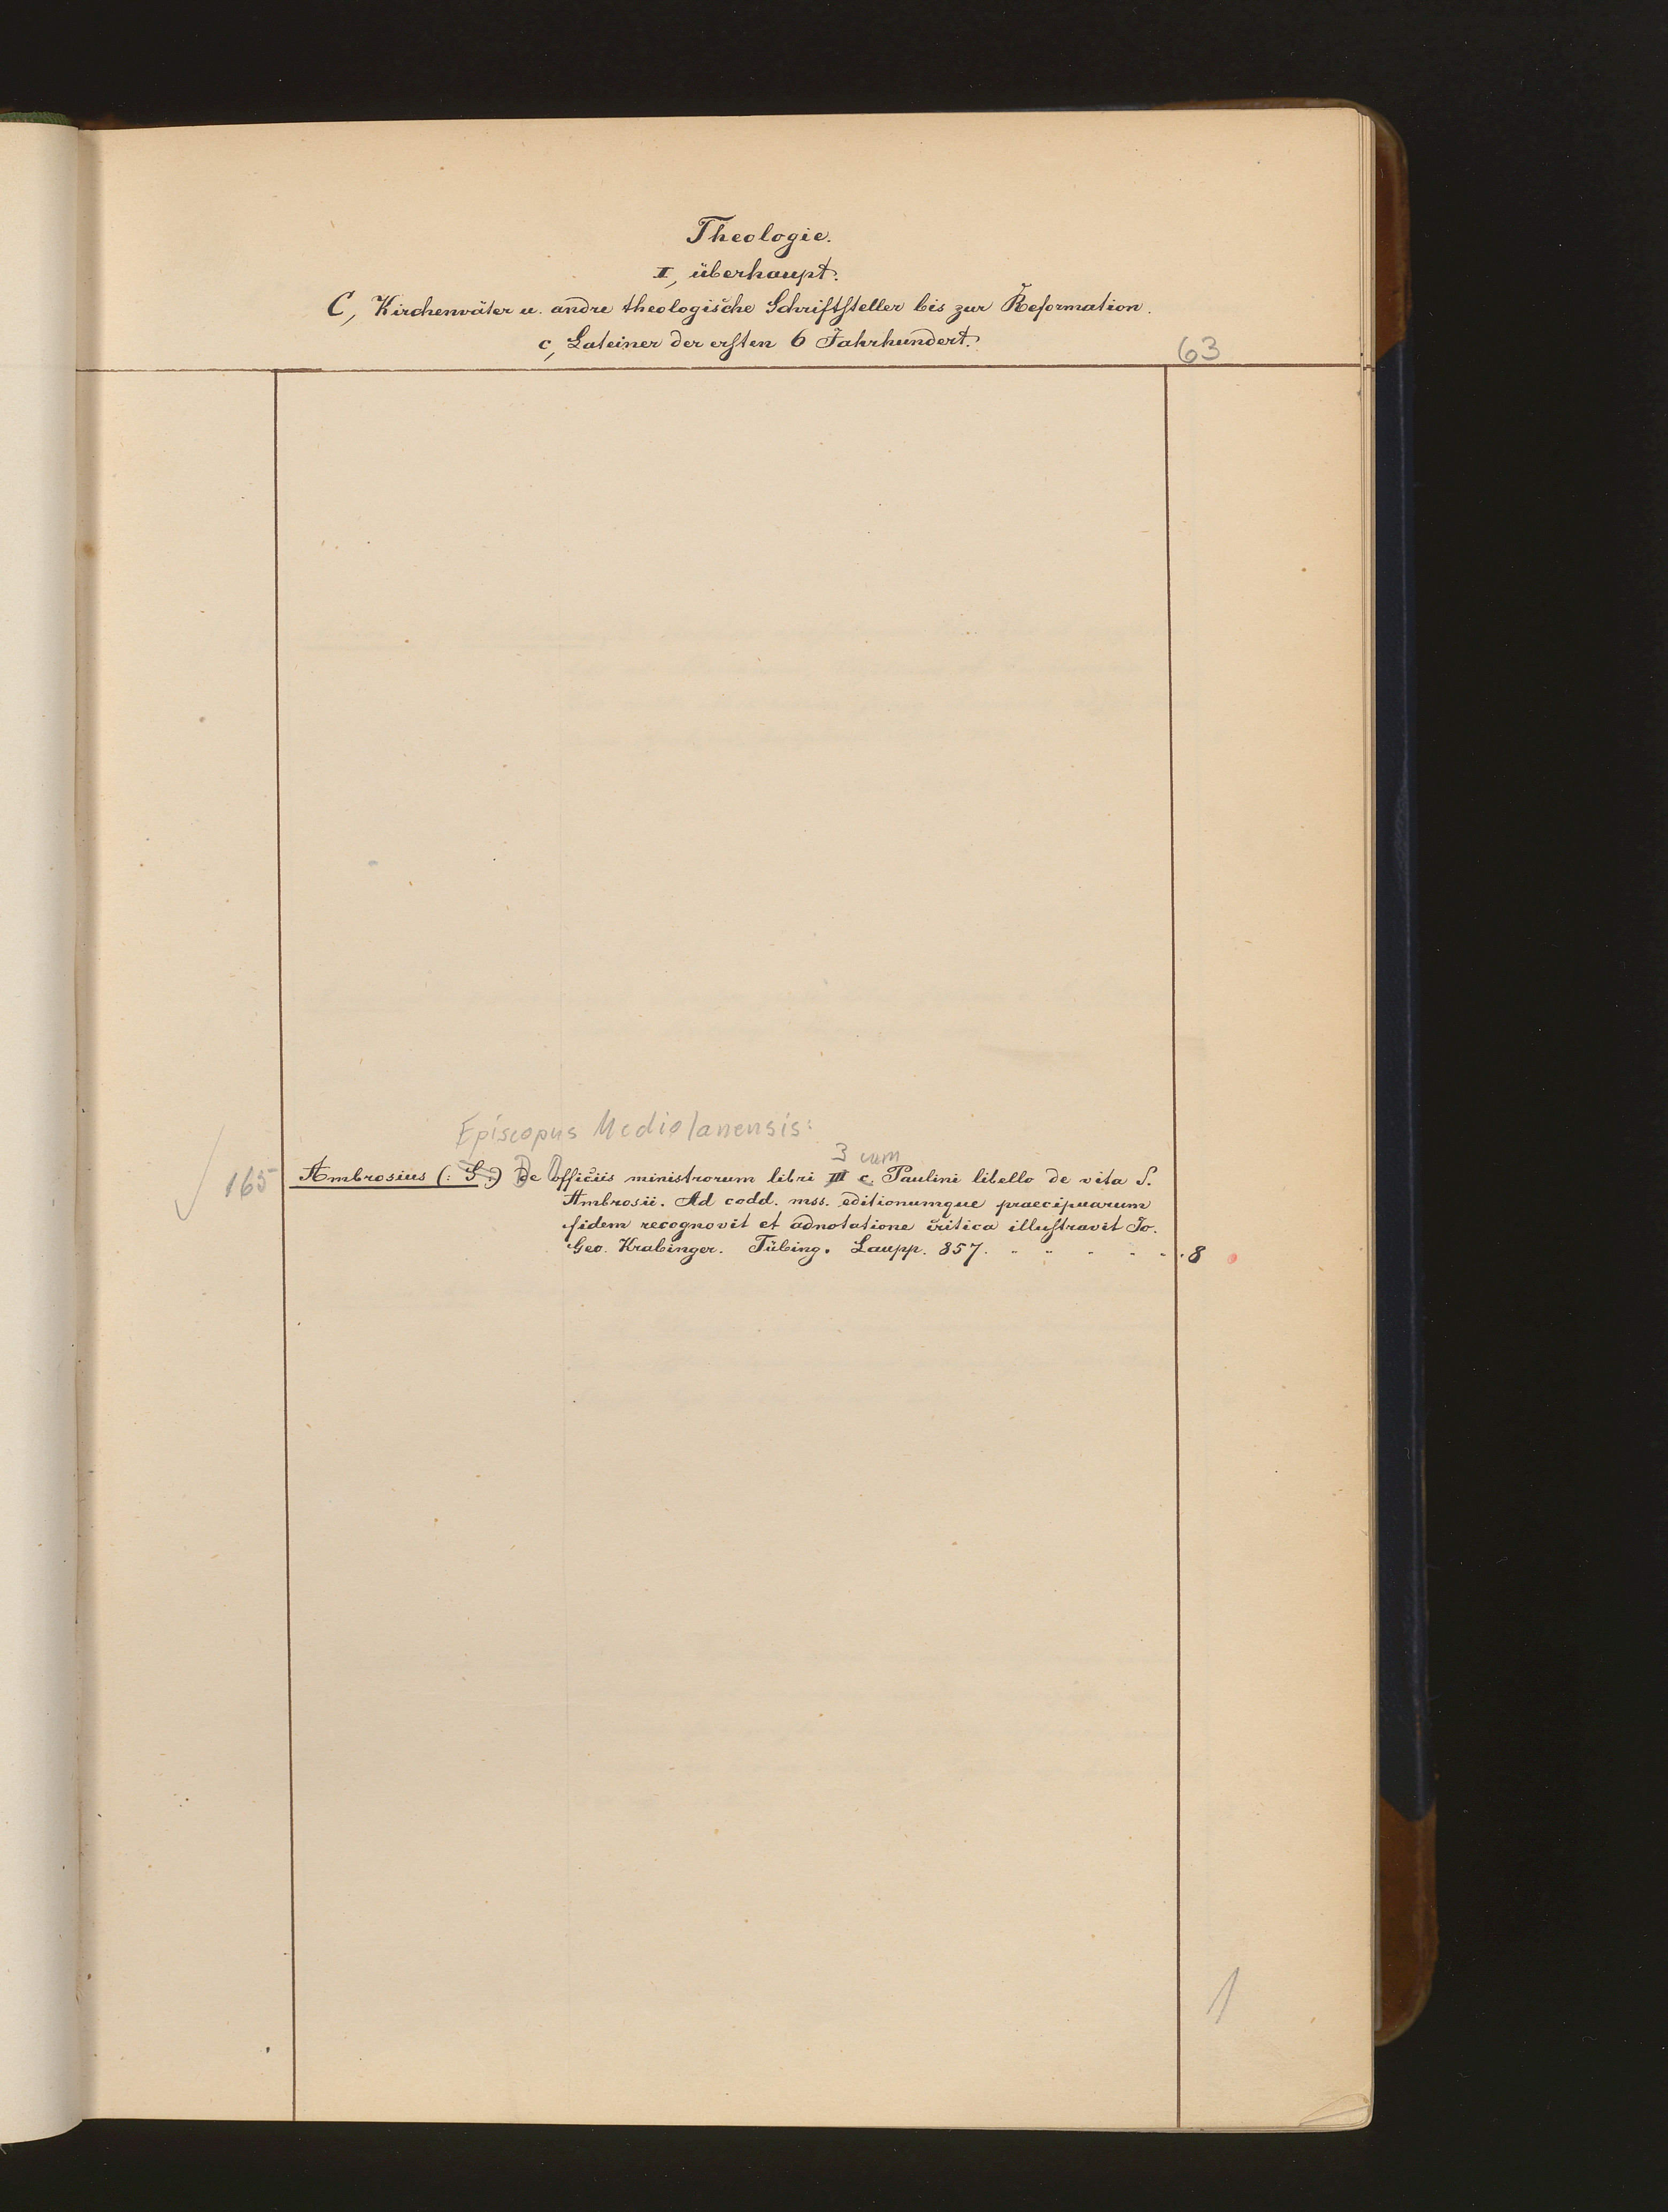 Theologie.
I, überhaupt.
C, Kirchenväter u. andre theologische Schriftsteller bis zur Reformation.
c, Lateiner der ersten 6 Jahrhundert.
63
Episcopus Mediolanensis:
3 cum
165 Ambrosius (: S :) De Officiis ministrorum libri III c. Paulini libello de vita S.
Ambrosii. Ad codd. mss. editionumque praecipuarum
fidem recognovit et adnotatione critica illustravit Jo.
Geo. Krabinger. Tübing. Laupp. 857. 8
1